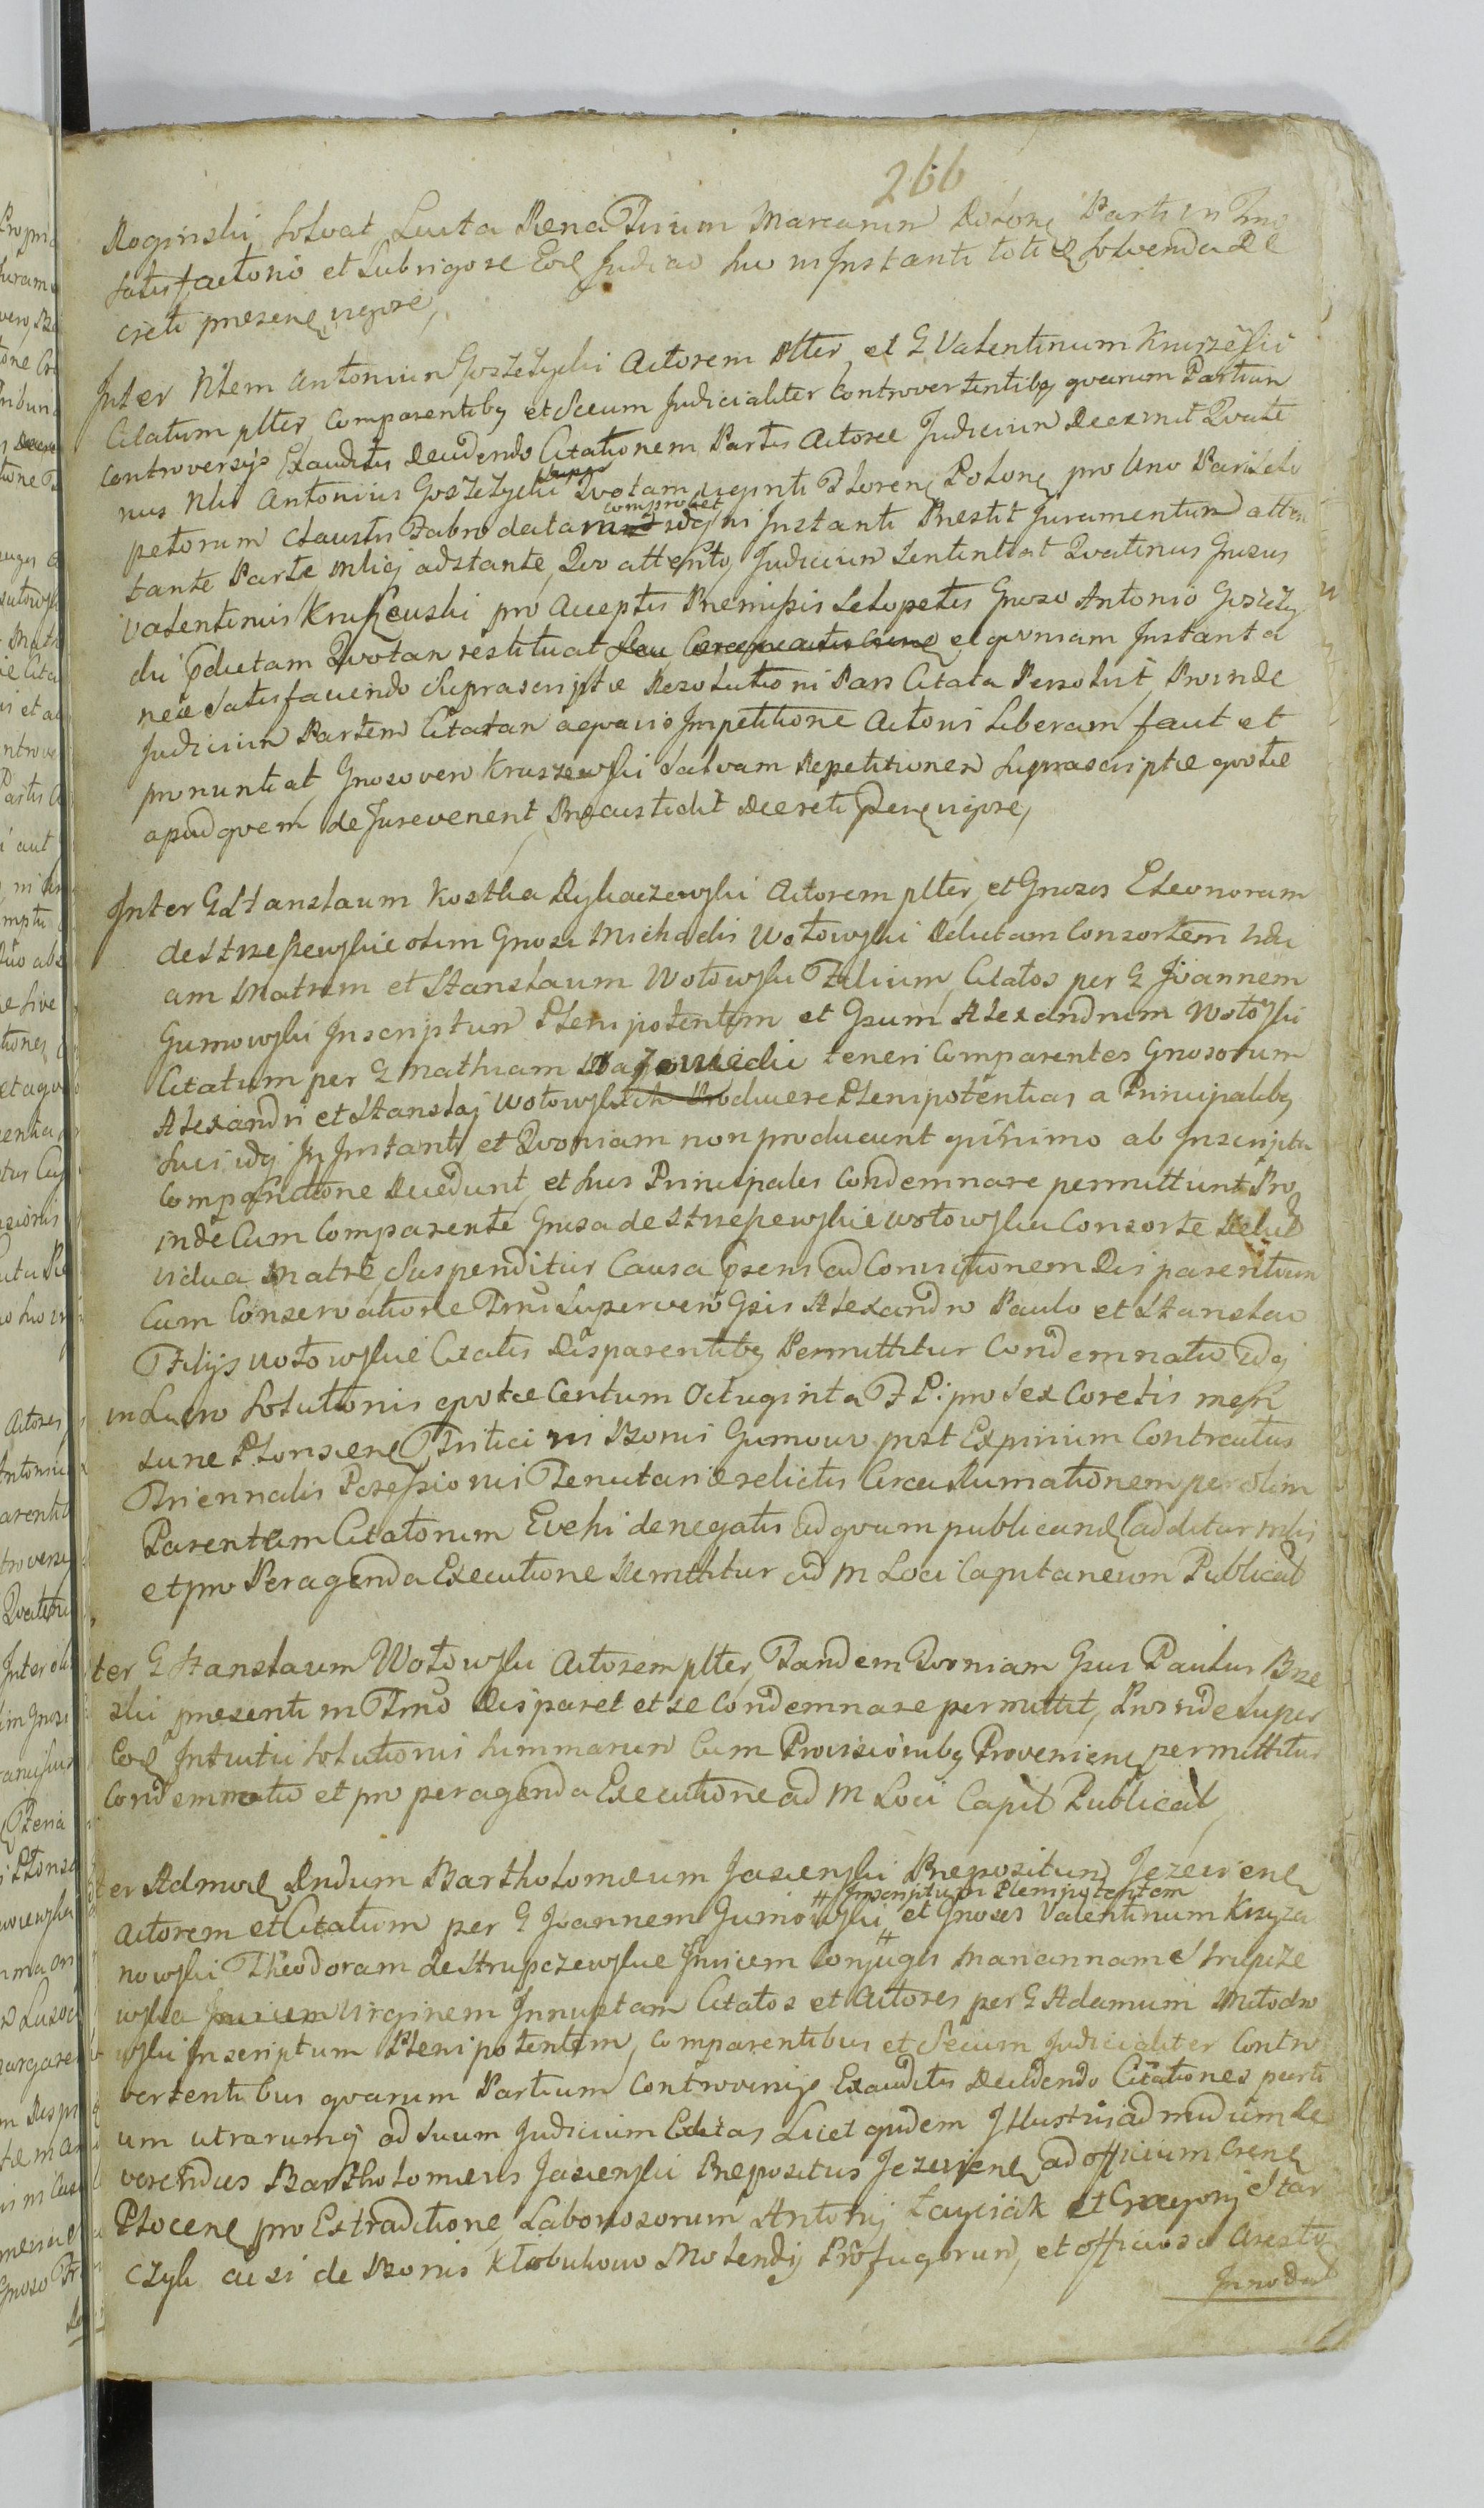 266
Roginski solvat Luita Pena Trium Marcarum Polon Parti in Tmo
satisfactorio et sub rigore Judicio suo in Instanti toties solvenda De
creti presenti vigore,
Inter Nlem Antonium Goszczycki Actorem plter et G Valentinum Kruszewski
Citatum plter Comparentibq et secum Judicialiter Controvertentibq quarum Partium
Controversijs Exauditis Decidendo Citationem Partis Actorea Judicium Decernit Quate
nus Nlis Antonius Goszczycki supp Quotam viginti Floren Polon pro Uno Pari Selo
petorum Claustris Fabro datam comprobet idq in Instanti Prestit Juramentum attes
tante Parte adstante, Quo attento, Judicium sententiat Quatenus Gnosus
Valentinus Kruszewski pro Acceptis Premissis Selopetis Gnoso Antonio Goszczy
cki pdictam Quotam restituat et quoniam Instanta
nee Satisfaciendo Suprascriptae Resolutioni Pars Citata Persolvit, Proinde
Judicium Partem Citatam a quavis Impetitione Actoris Liberam facit et
pronuntiat, Gnoso vero Kruszewski salvam Repetitionem suprascriptae quotae
apud quem de Jure venerit, Precustodit Decreti vigore,
Inter G Stanslaum Kostka Rykaczewski Actorem plter, et Gnosos Eleonoram
de Strzeszewskie olim Gnosi Michaelis Wotowski Relictam Consortem vidu
am Matrem et Stanslaum Wotowski Filium, Citatos per G Joannem
Gumowski Inscriptum Plenipotentem et Gsum Alexandrum Wotowski
Citatum per G Mathiam teneri Comparentes Gnosorum
Alexandri et Stanslaj Wotowskich Producere Plenipotentias a Principalibq
suis idq In Instanti et Quoniam non producunt quinimo ab Inscripta
Comparitione Recedunt et suos Principales Condemnare permittunt Pro
inde Cum Comparente Gnosa de Strzeszewskie Wotowska Consorte Relict
vidua Matre Suspenditur Causa psens ad Convictionem Disparentium
Cum Conservatione Tmi super vero Gsis Alexandro Paulo et Stanslao
Filijs Wotowskie Citatis Disparentibq Permittitur Condemnatio idq
in Lucro Solutionis quotae Centum Octuginta F P: pro sex Coretis mens
surae Plonscien Tritici in Bonis Gumowo post Expirium Contractus
Triennalis Possessionis Tenutariae relictis Circa Rumationem per olim
Parentem Citatorum Evehi denegatis ad quam publicand additur
et pro Peragenda Executione Remittitur ad M Loci Capitaneum Publicat
ter G Stanslaum Wotowski Actorem plter, Tandem Quoniam Gsus Paulus Brze
ski presenti in Tmo Disparet et se Condemnare permittit, Proinde super
Intuitu solutionis summarum Cum Provisionibq Provenien permittitur
Condemnatio et pro peragenda Executione ad M Loci Capit Publicat,
ter Admod Rndum Bartholomeum Jasienski Prepositum Jezewien
Actorem et Citatum per G Joannem Gumowski # Inscriptum Plenipotentem et Gnosos Valentinum Krzyza
nowski Theodoram de Strupczewskie Invicem Conjuges Mariannam Strupcze
wska Virginem Innuptam Citatos et Actores per G Adamum Mlodo
wski Inscriptum Plenipotentem, Comparentibus et Secum Judicialiter Contro
vertentibus quarum Partium Controversijs Exauditis Decidendo Citationes parti
um utrarumq ad suum Judicium Editas Licet quidem Illustris admodum Re
verendus Bartholomeus Jasienski Prepositus Jezewien ad officium Cren
Plocen pro Extraditione Laboriosorum Antonij Layciak et Gregorij Star
czyk de Bonis Klobukowo Molendij Profugorum, et officioso Aresto
Innodat